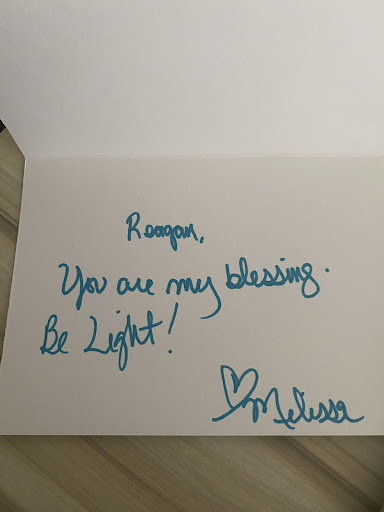 Reagan,
You are my blessing.
Be Light!
♡Melissa